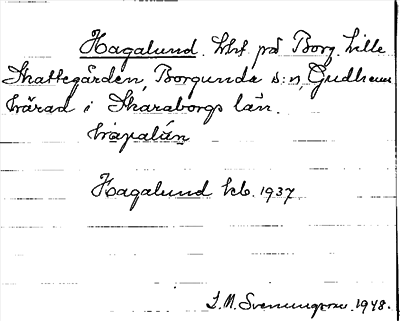 Hagalund. lht på Borg. Lille
Skattegården, Borgunda s:n, Gudhems
härad i Skaraborgs län.
Hagalund hb. 1937
S. M. Svenungsson. 1948.